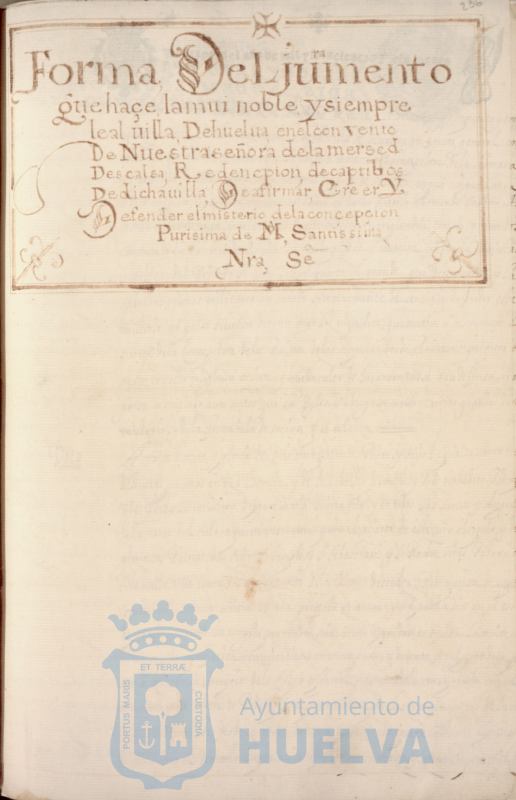 236
Forma, Del juramento
que haçe, lamui noble, ysiempre
leal uilla, Dehuelua enelconvento
De Nuestraseñora delamersed
Descalsa, Redencpion, decaptibos
Dedichauilla, Deafirmar, Creer Y
Defender elmisterio delaconcepcion
Purisima de M, Santissima
Nra, Sª
ET TERRÆ
PORTUS MARIS
CUSTODIA
Ayuntamiento de
HUELVA